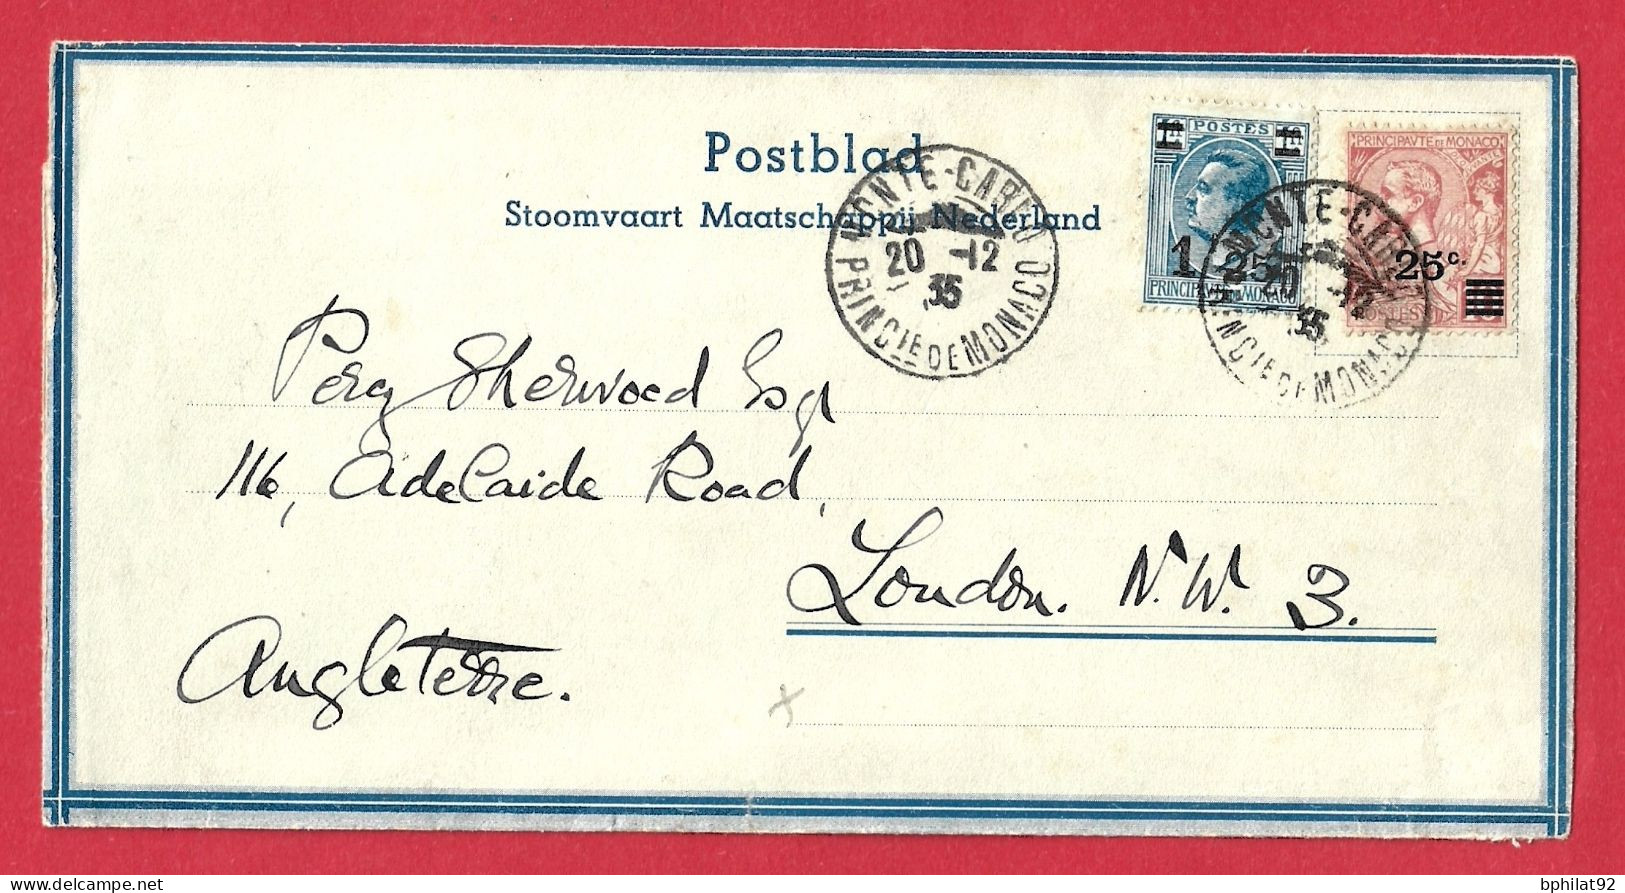 Postblad
Stoomvaart Maatschappij Nederland
MONTE-CARLO
20 -12
35
PRINCIE DE MONACO
POSTES
1 25
PRINCIPAUTE DE MONACO
PRINCIPAVTE DE MONACO
25c.
POSTES
MONTE-CARLO
20 -12
35
PRINCIE DE MONACO
Percy Sherwood Esqr
116, Adelaide Road,
London. N.W. 3.
Angleterre.
x
bphilat92